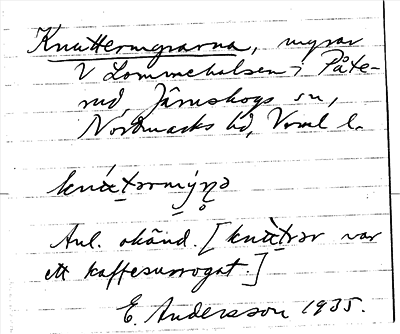 Knuttermyrarna, myrar
V Lommehalsen i Påte-
rud, Järnskogs sn,
Nordmarks hd, Vrml l.
knuttərmýṇə
Anl. okänd. [knùttrər var
ett kaffesurrogat.]
E. Andersson 1935.